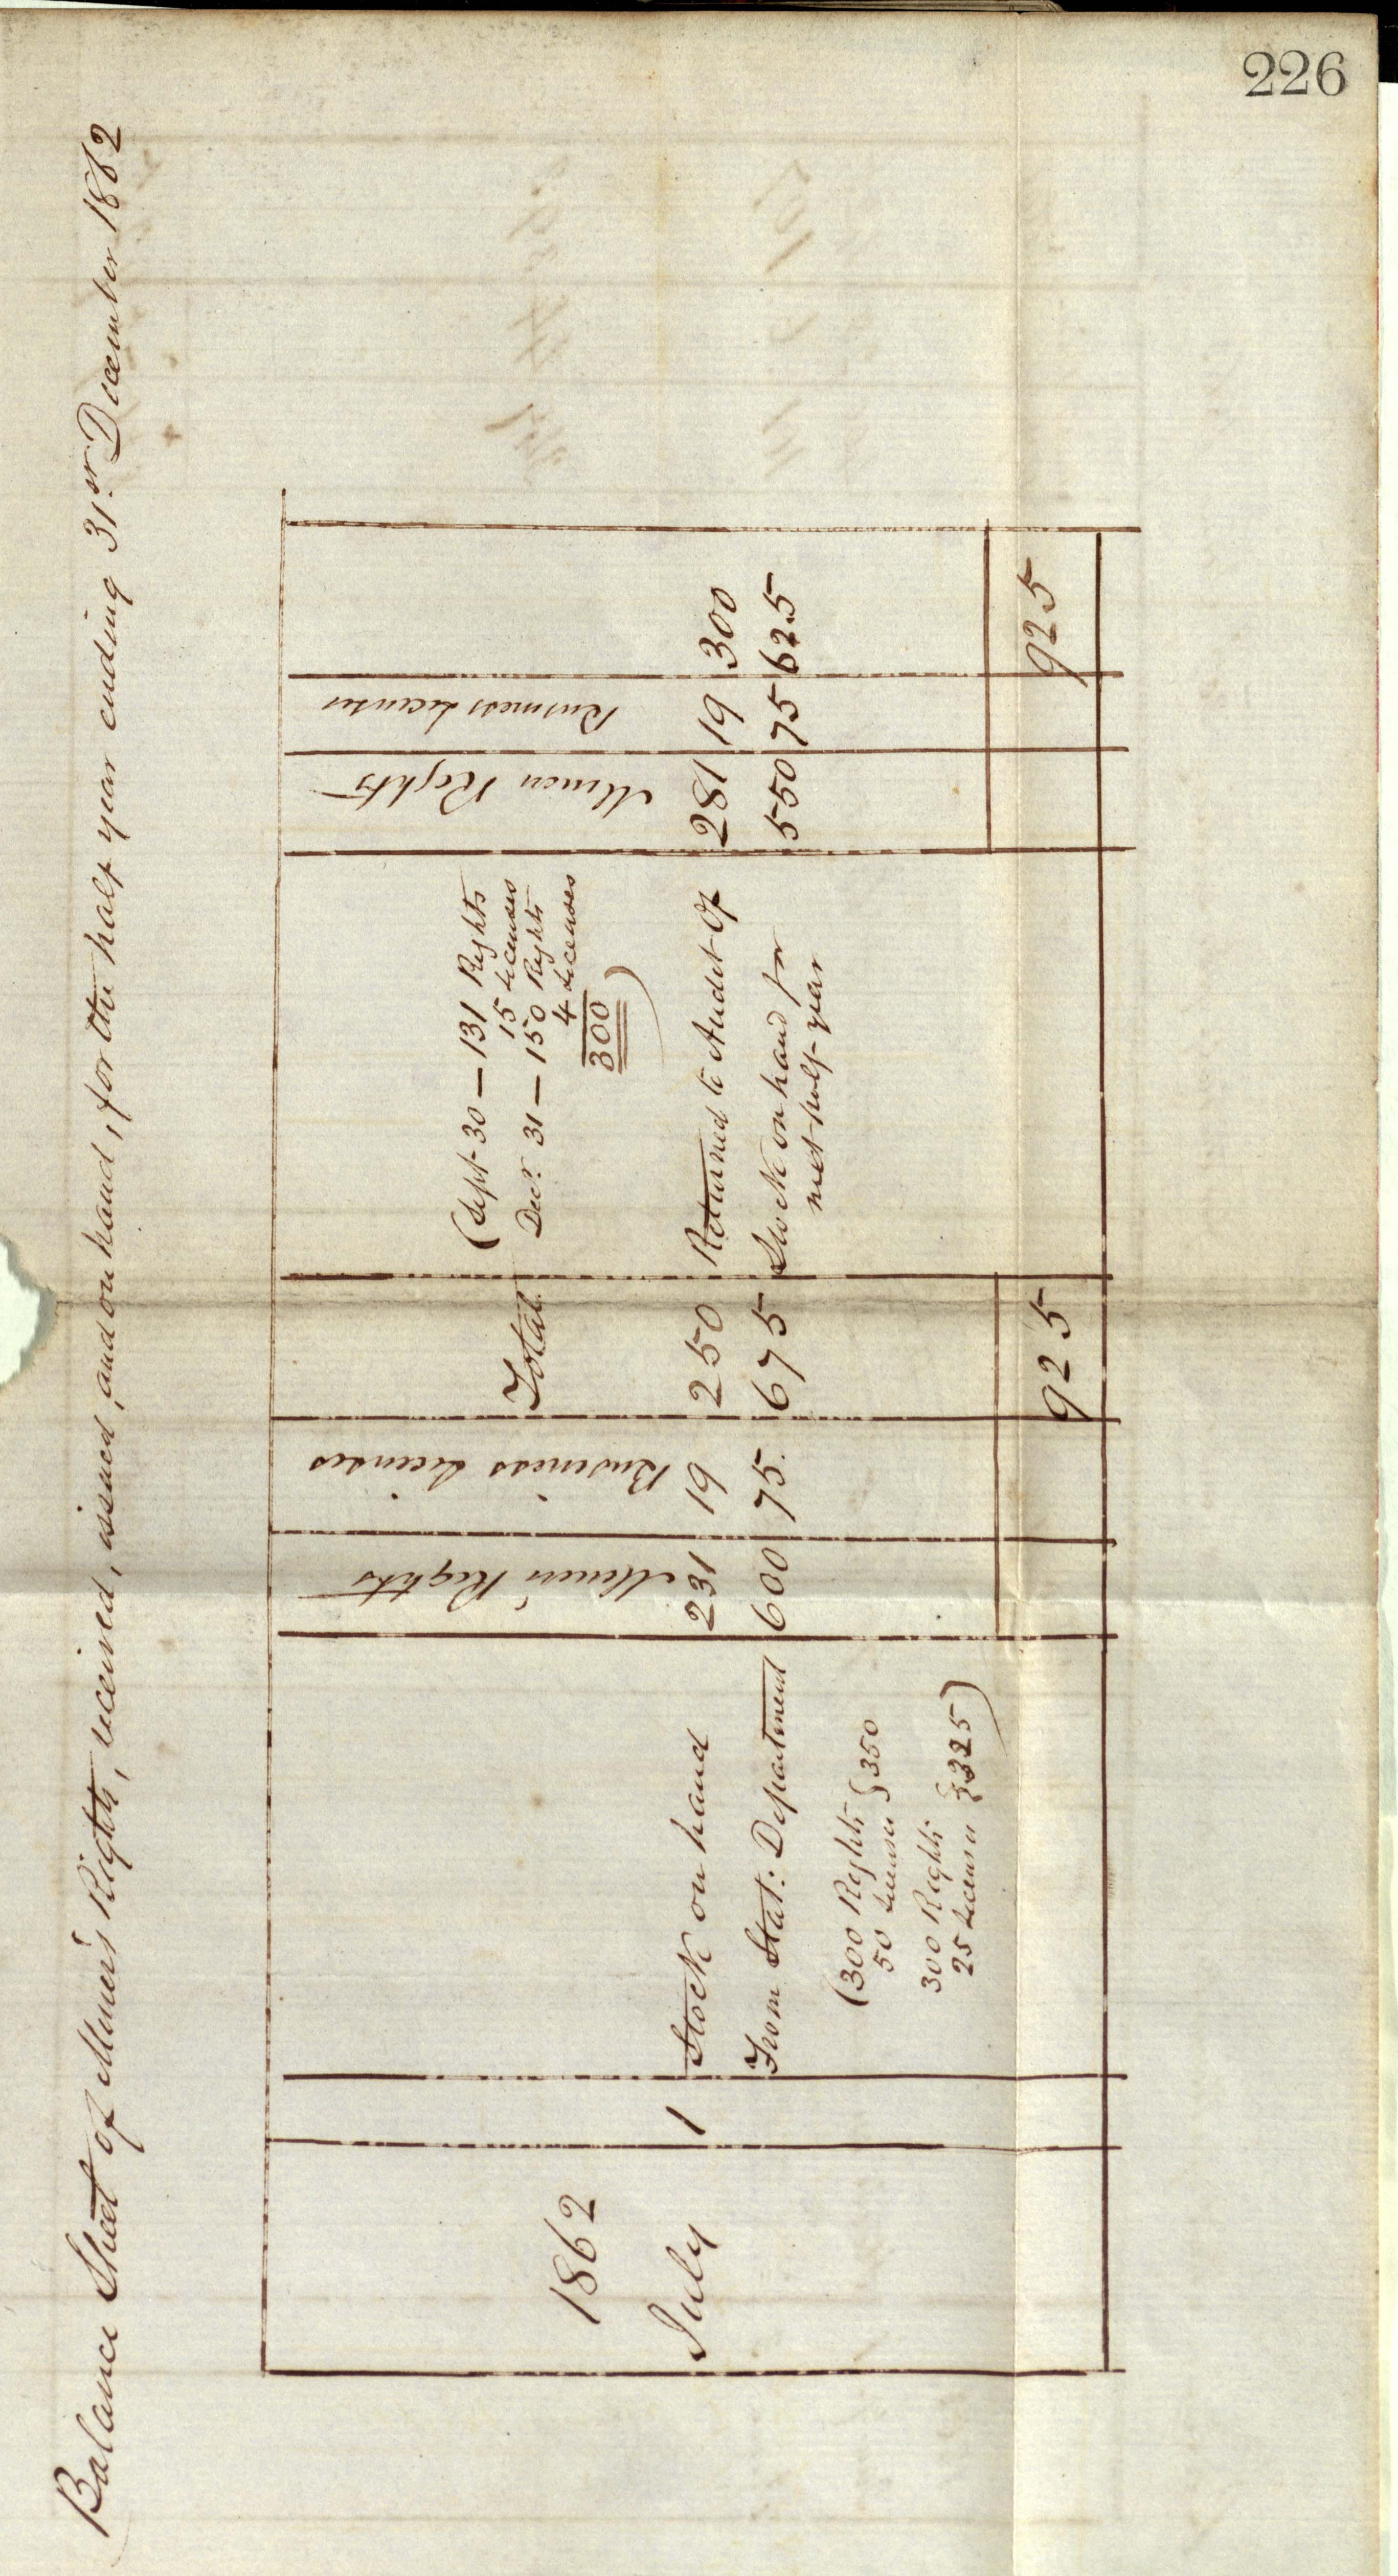 226
Balance Sheet of Miner's Rights, received, issued, and on hand, for the half year ending 31st December 1862
1862
July 1
Miners' Rights
Business Licenses
Total
Stock on hand 231 19 250
From Stat: Department 600 75. 675
(300 Rights
50 Licenses } 350
300 Rights
25 Licenses } 325)
925
(Sept. 30 — 131 Rights
15 Licenses
Decr. 31 — 150 Rights
4 Licenses
300)
Miners Rights
Business Licenses
Returned to Audit Of 281 19 300
Stock on hand for
next half-year 550 75 625
925